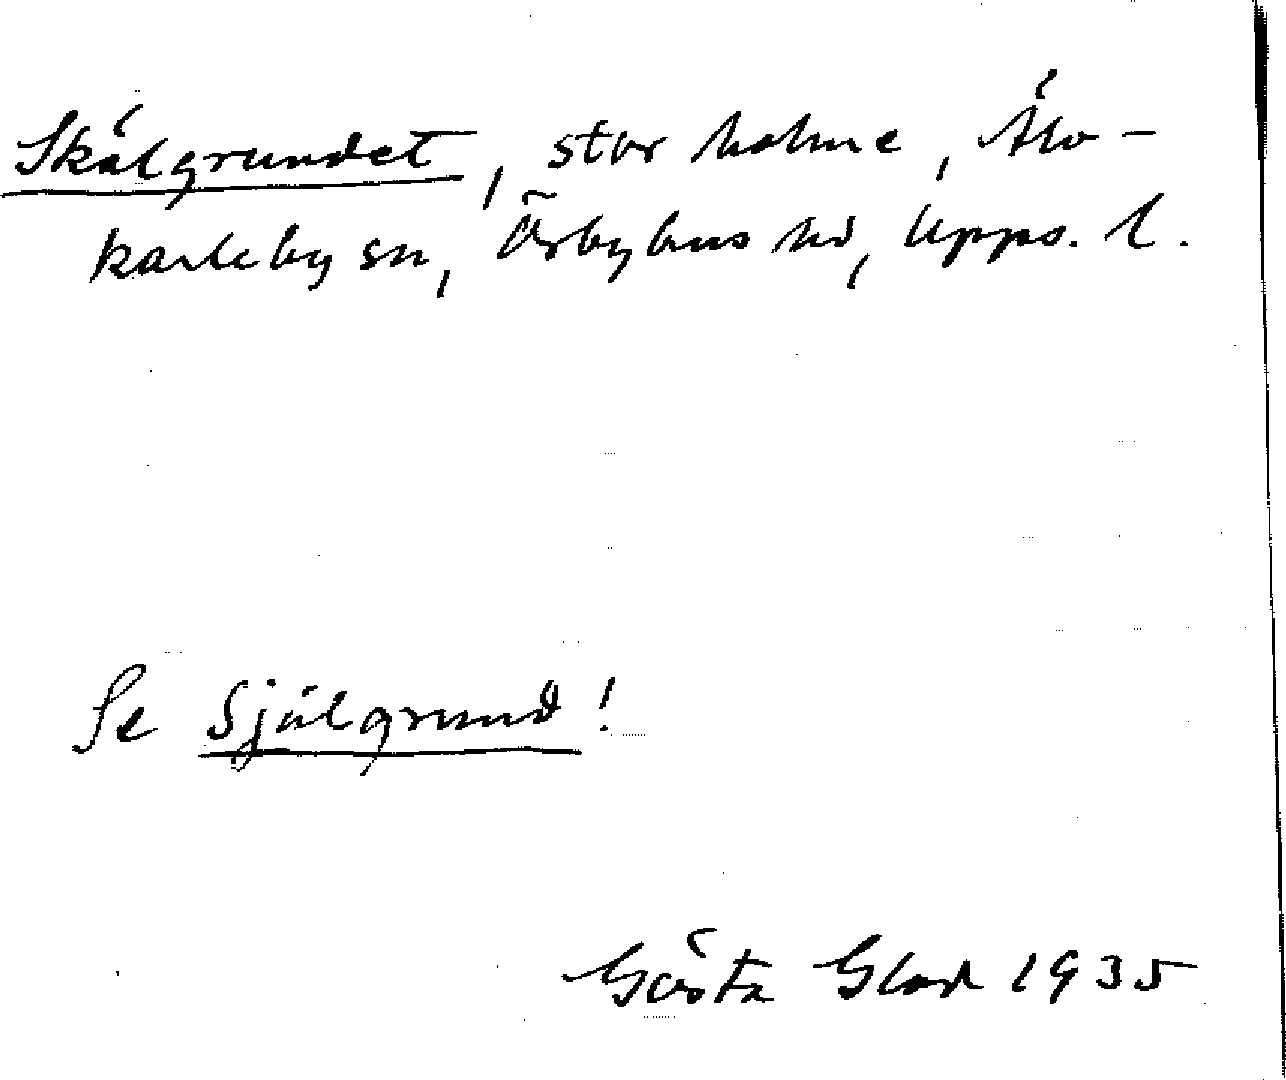 Skålgrundet, stor holme, Älv-
karleby sn, Örbyhus hd, Upps. l.
Se Själgrund!
Gösta Glad 1935